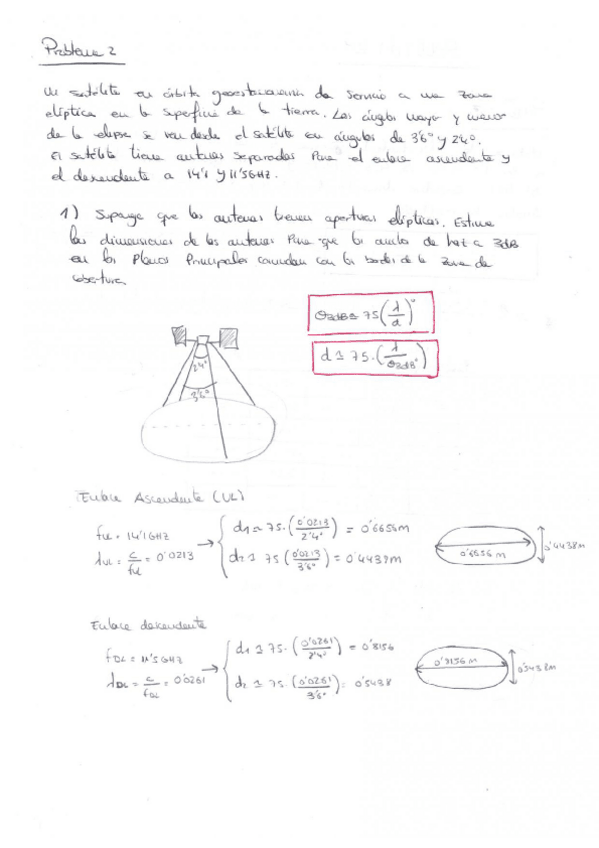 Problema 2
Un satélite en órbita geoestacionaria da servicio a una zona
elíptica en la superficie de la tierra. Los ángulos mayor y menor
de la elipse se ven desde el satélite en ángulos de 3'6° y 2'4°.
El satélite tiene antenas separadas para el enlace ascendente y
el descendente a 14'1 y 11'5GHz.
1) Suponga que las antenas tienen aperturas elípticas. Estime
las dimensiones de las antenas para que los anchos de haz a 3dB
en los planos principales coincidan con los bordes de la zona de
cobertura.
θ3dB ≃ 75(λ/d)°
d ≃ 75·(λ/θ3dB°)
2'4°
3'6°
Enlace Ascendente (UL)
fUL = 14'1GHz
λUL = c/fUL = 0'0213
d1 ≃ 75·(0'0213/2'4°) = 0'6656m
d2 ≃ 75(0'0213/3'6°) = 0'4437m
0'6656 m
0'4438m
Enlace descendente
fDL = 11'5GHz
λDL = c/fDL = 0'0261
d1 ≃ 75·(0'0261/2'4°) = 0'8156
d2 ≃ 75·(0'0261/3'6°) = 0'5438
0'8156 m
0'5438m